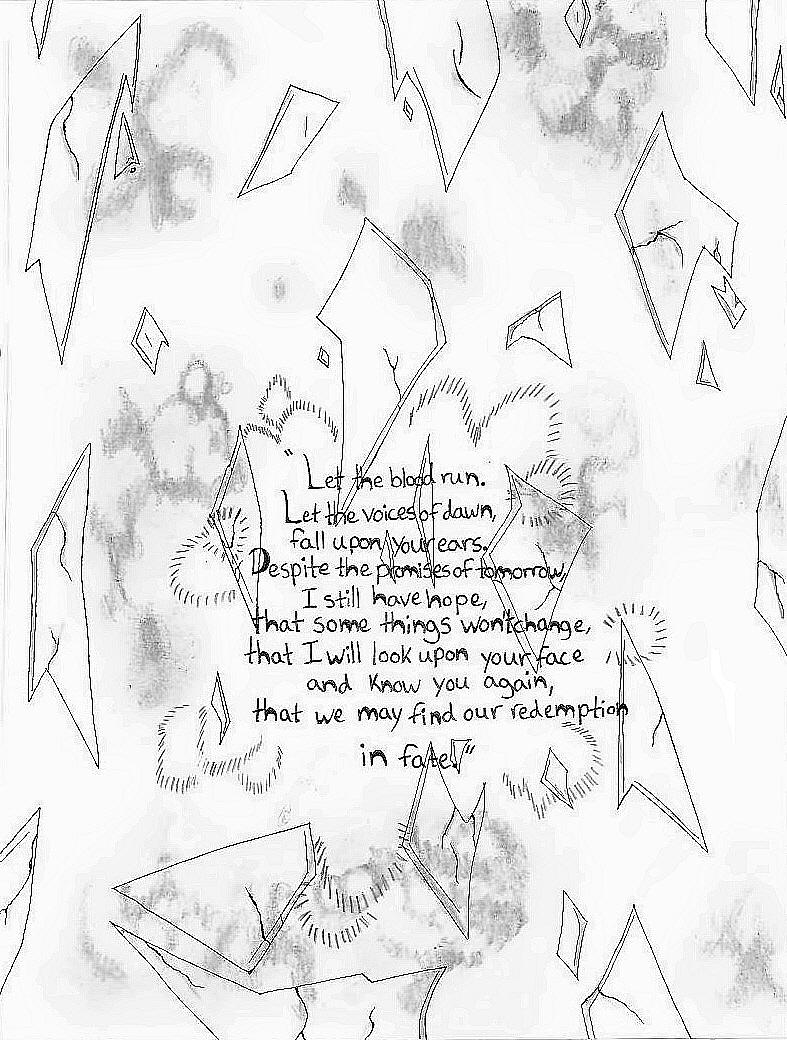 "Let the blood run.
Let the voices of dawn,
fall upon your ears.
Despite the promises of tomorrow,
I still have hope,
that some things won't change,
that I will look upon your face
and know you again,
that we may find our redemption
in fate."